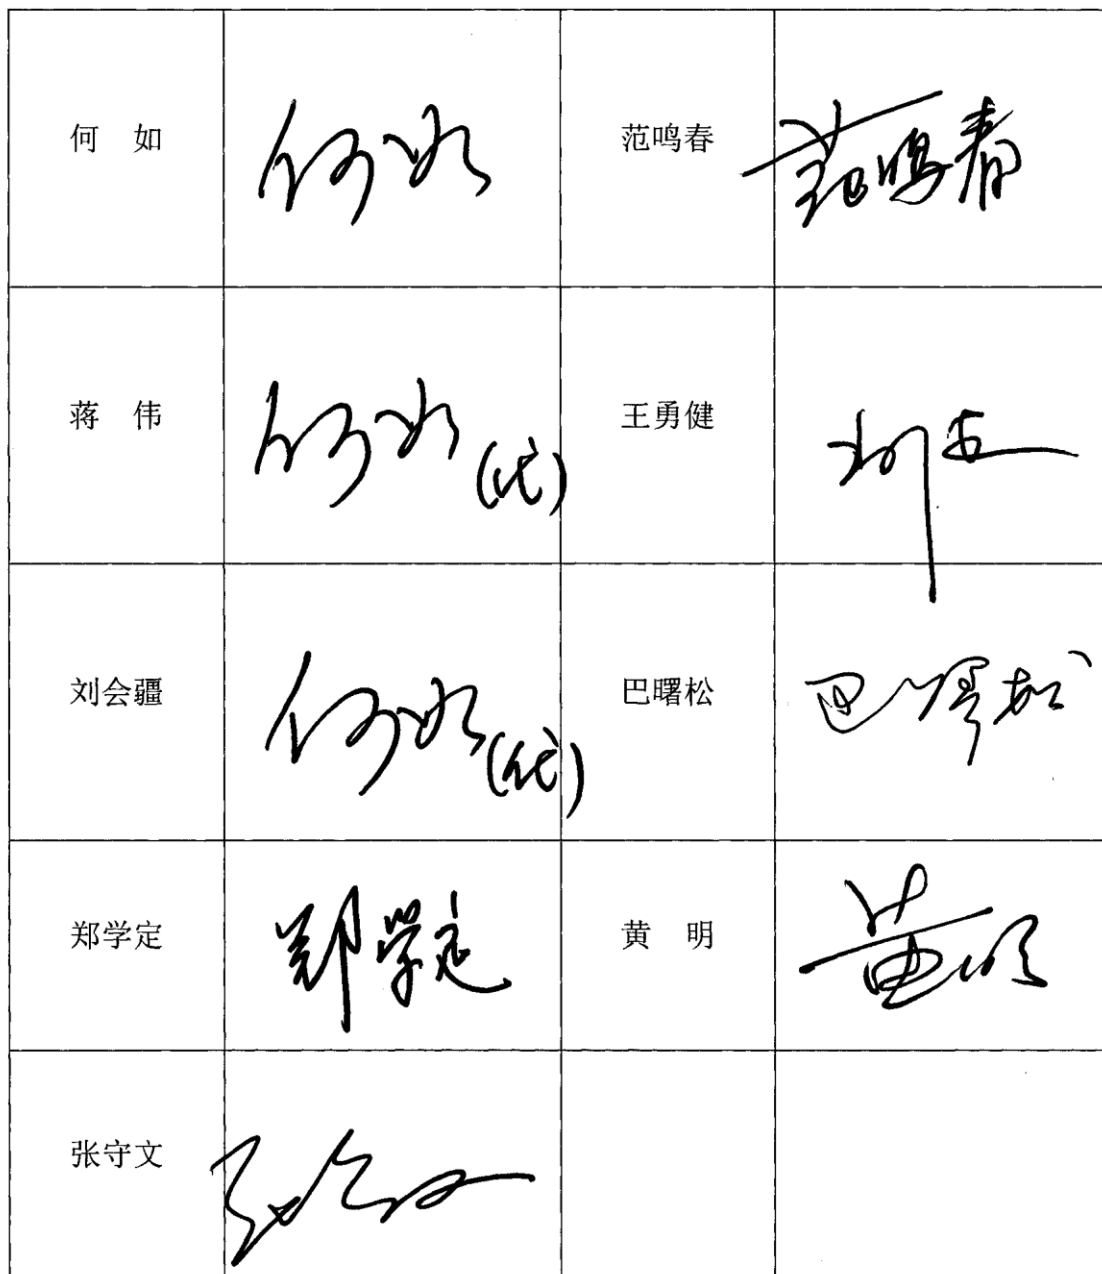 何 如 何如 范鸣春 范鸣春
蒋 伟 何如(代) 王勇健
刘会疆 何如(代) 巴曙松 巴曙松
郑学定 郑学定 黄 明 黄明
张守文 张守文